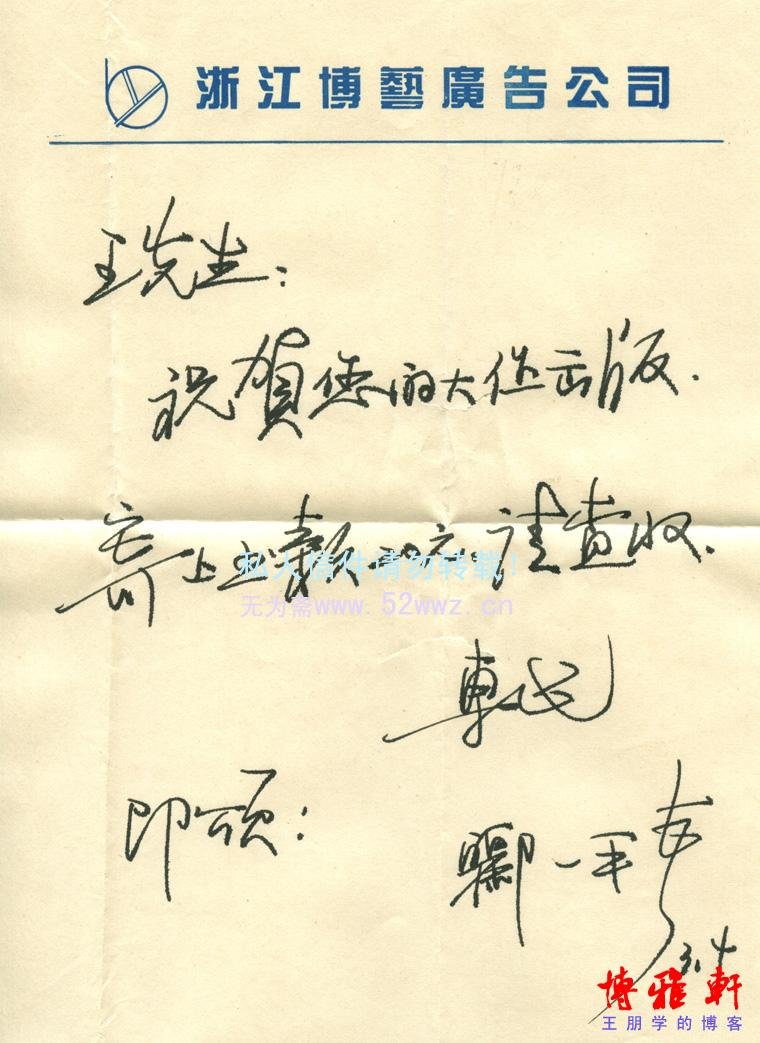 浙江博藝廣告公司
王先生：
祝賀您的大作出版．
寄上款 请查收．
私人信件请勿转载！
无为斋www.52wwz.cn
即颂：
一平
3.4
博雅軒
王朋学的博客